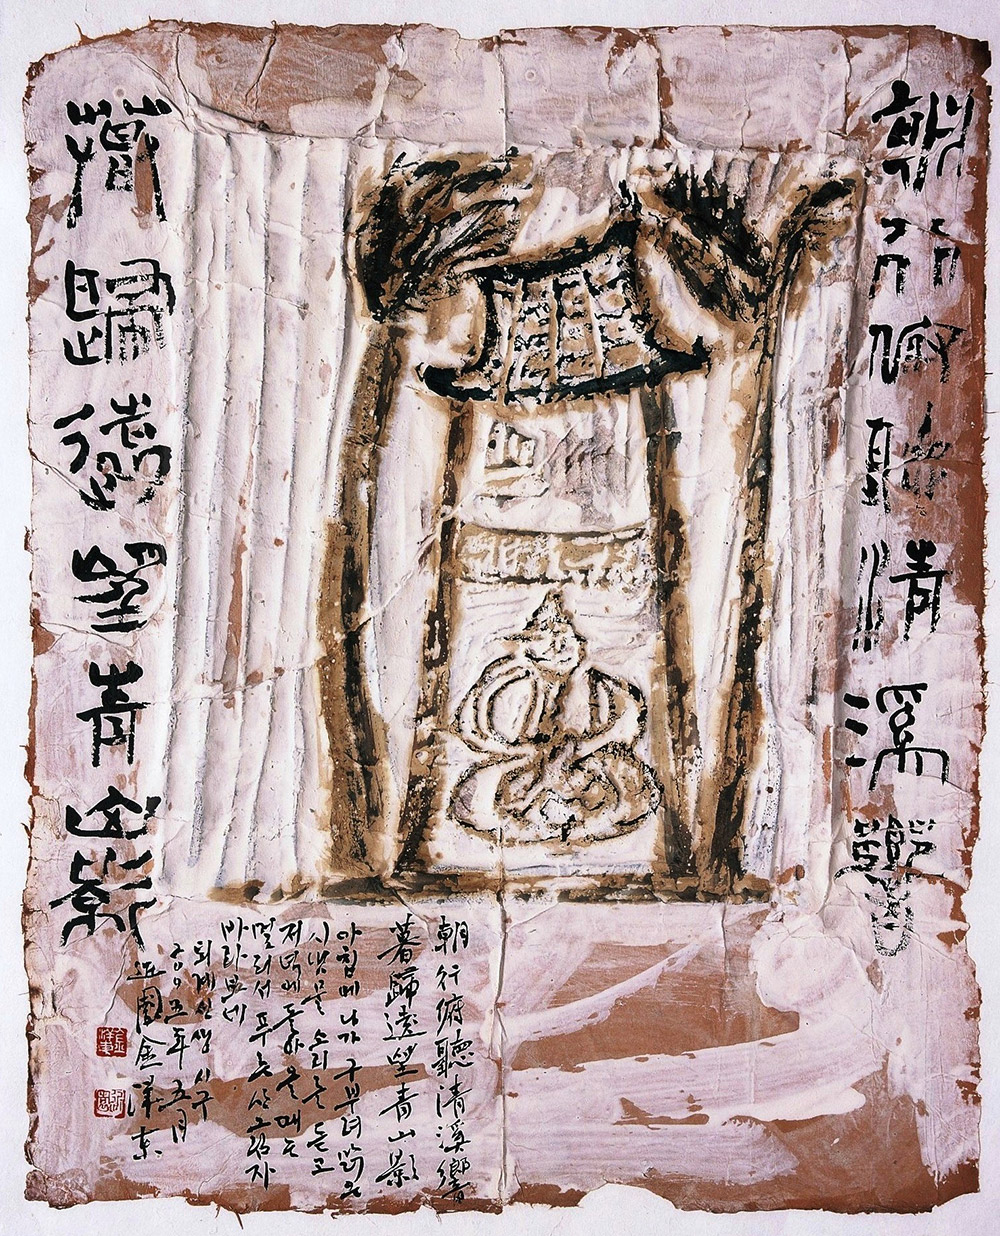 朝行俯聽清溪響
暮歸遠望青山影
朝行俯聽清溪響
暮歸遠望青山影
아침에 나가 구부려 맑은
시냇물 소리를 듣고
저녁에 돌아올때는
멀리서 푸른산 그림자
바라보네
퇴계선생 시구
二〇〇五年 五月
近園 金洋東